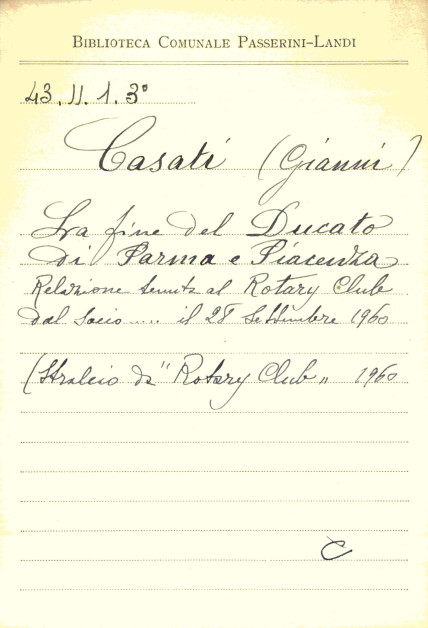 BIBLIOTECA COMUNALE PASSERINI-LANDI
43. II. 1. 3°
Casati (Gianni)
La fine del Ducato
di Parma e Piacenza
Relazione tenuta al Rotary Club
dal socio ..... il 28 Settembre 1960
(Stralcio da "Rotary Club„ 1960
C